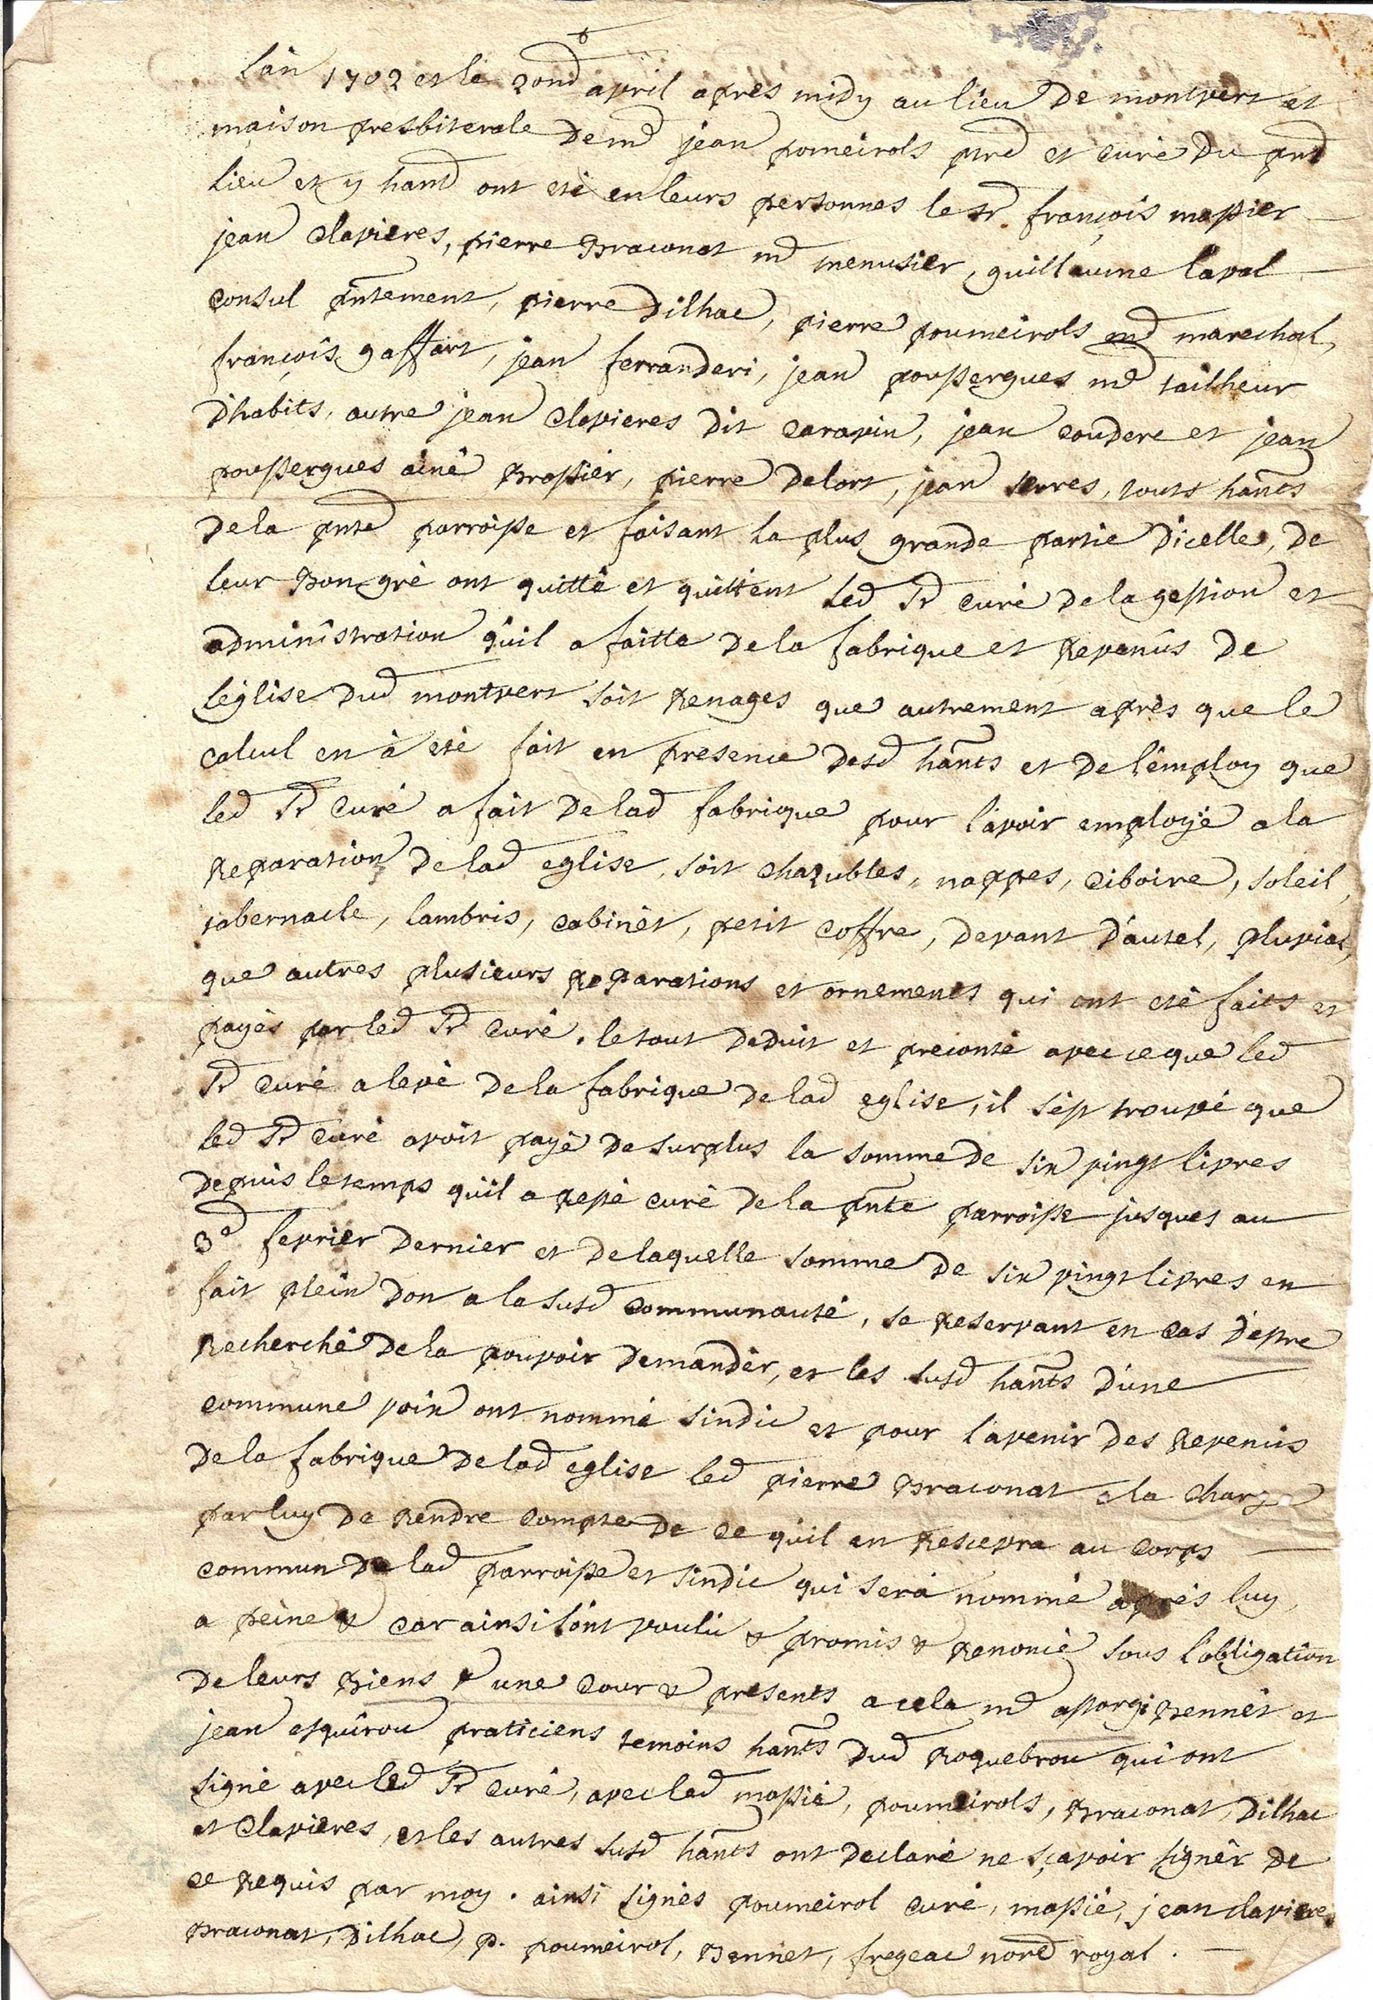 Lan 1702 et le 2ond avril apres midy au lieu de montvert et
maison presbiterale de md jean pomeirols ptre et curé du pnt
lieu et y hant ont eté en leurs personnes le sr françois massier
jean clavieres, pierre Braconat md menusier, guillaume laval
consul pntement, pierre dilhac, pierre poumeirols md marechal,
françois gaffart, jean ferranderi, jean poussergues md tailheur
d'habits, autre jean clavieres dit caravin, jean couderc et jean
poussergues ainé Brassier, pierre delort, jean serres, touts hants
de la pnte parroisse et faisant la plus grande partie d'icelle, de
leur Bon gré ont quitté et quittent led Sr curé de la gestion et
administration qu'il a faitte de la fabrique et Revenus de
l'église dud montvert soit Renages que autrement après que le
calcul en à eté fait en presence desd hants et de l'employ que
led Sr curé a fait de lad fabrique pour l'avoir employé a la
Reparation de lad eglise, soit chazubles, nappes, ciboire, soleil,
tabernacle, lambris, cabinet, petit coffre, devant d'autel, pluvial,
que autres plusieurs Reparations et ornements qui ont eté faits et
payés par led Sr curé, le tout deduit et preconté avec ce que led
Sr curé a levé de la fabrique de lad eglise, il s'est trouvé que
led Sr curé avoit payé de surplus la somme de six vingt livres
depuis le temps qu'il a Resté curé de la pnte parroisse jusques au
3e fevrier dernier et de laquelle somme de six vingt livres en
fait plein don a la susd communauté, se Reservant en cas d'estre
Recherché de la pouvoir demander, et les susd hants d'une
commune voix ont nommé sindic et pour l'avenir des Revenus
de la fabrique de lad eglise led pierre Braconat a la charge
par luy de Rendre compte de ce qu'il en Recevra au corps
commun de lad parroisse et sindic qui sera nommé après luy
a peine & car ainsi l'ont voulu & promis & Renoncé sous l'obligation
de leurs Biens & une cour & presents a cela md astorgi Bennet et
jean esquirou praticiens temoins hants dud Roquebrou qui ont
signé avec led Sr curé, avec led massié, poumeirols, Braconat, dilhac
et clavieres, et les autres susd hants ont declaré ne sçavoir signer de
ce Requis par moy. ainsi signés poumeirol curé, massié, jean clavieres
Braconat, dilhac, p. poumeirol, Bennet, fregeac nore royal.